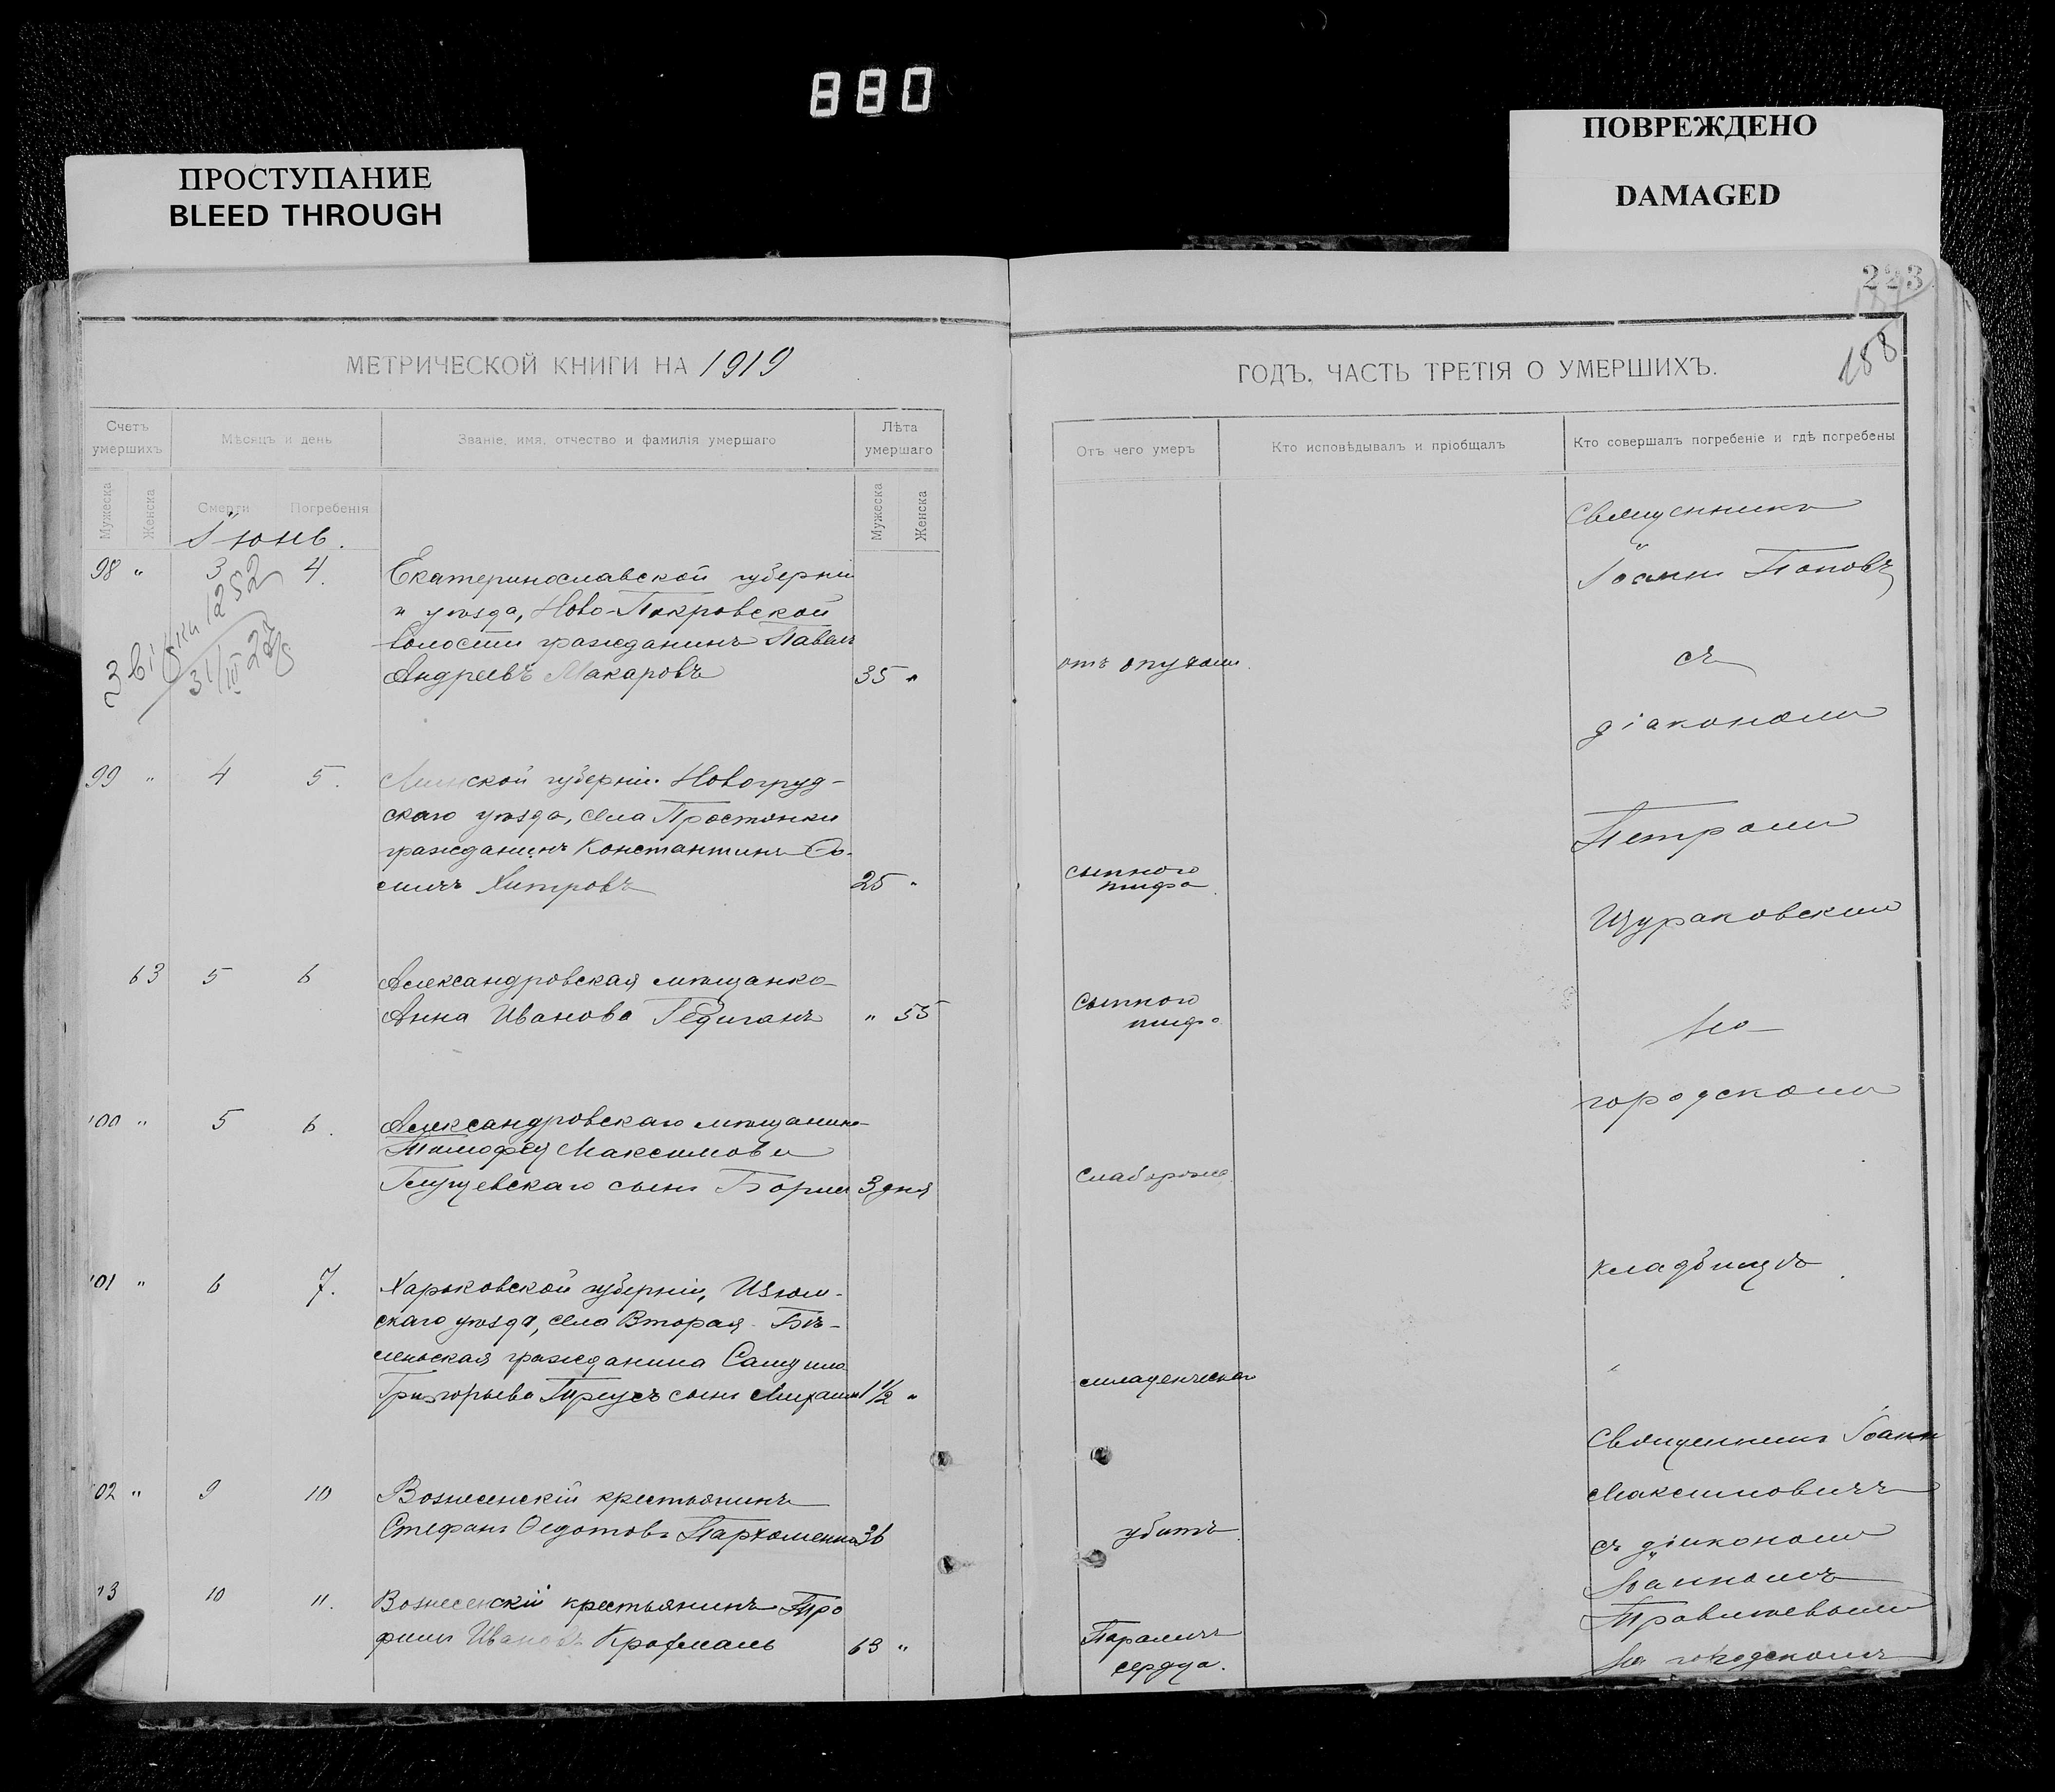 880
ПРОСТУПАНИЕ
BLEED THROUGH
ПОВРЕЖДЕНО
DAMAGED
223
188
МЕТРИЧЕСКОЙ КНИГИ НА 1919
ГОДЪ, ЧАСТЬ ТРЕТІЯ О УМЕРШИХЪ.
Счетъ умершихъ
Мѣсяцъ и день
Званіе, имя, отчество и фамилія умершаго
Лѣта умершаго
Отъ чего умеръ
Кто исповѣдывалъ и пріобщалъ
Кто совершалъ погребеніе и гдѣ погребены
Мужеска
Женска
Смерти
Погребенія
Мужеска
Женска
Іюнь.
98 " 3 4.
Екатеринославской губерніи
и уѣзда, Ново-Покровской
волости гражданинъ Павелъ
Андреевъ Макаровъ 35 "
отъ опухоли.
99 " 4 5.
Минской губерніи Новогруд-
скаго уѣзда, села Простянки
гражданинъ Константинъ
Хитровъ 25 "
сыпного
тифа.
63 5 6
Александровская мѣщанка
Анна Иванова " 55
сыпного
тифа
100 " 5 6.
Александровскаго мѣщанина
Тимофея Максимова
сынъ Борисъ 3 дня
101 " 6 7.
Харьковской губерніи, Изюм-
скаго уѣзда, села Вторая Бѣ-
гражданина Самуила
Григорьева сынъ Михаилъ 1 1/2 "
младенческой
102 " 9 10
Вознесенскій крестьянинъ
Стефанъ Федотовъ Пархоменко 36
убитъ.
10 11.
Вознесенскій крестьянинъ Тро
фимъ Ивановъ Крохмаль 63 "
Параличъ
сердца.
Священникъ
Іоаннъ Поповъ
съ
діакономъ
Петромъ
Щураковскимъ
На
городскомъ
кладбищѣ.
Священникъ Іоаннъ
Максимовичъ
съ діакономъ
Іоанномъ
На городскомъ